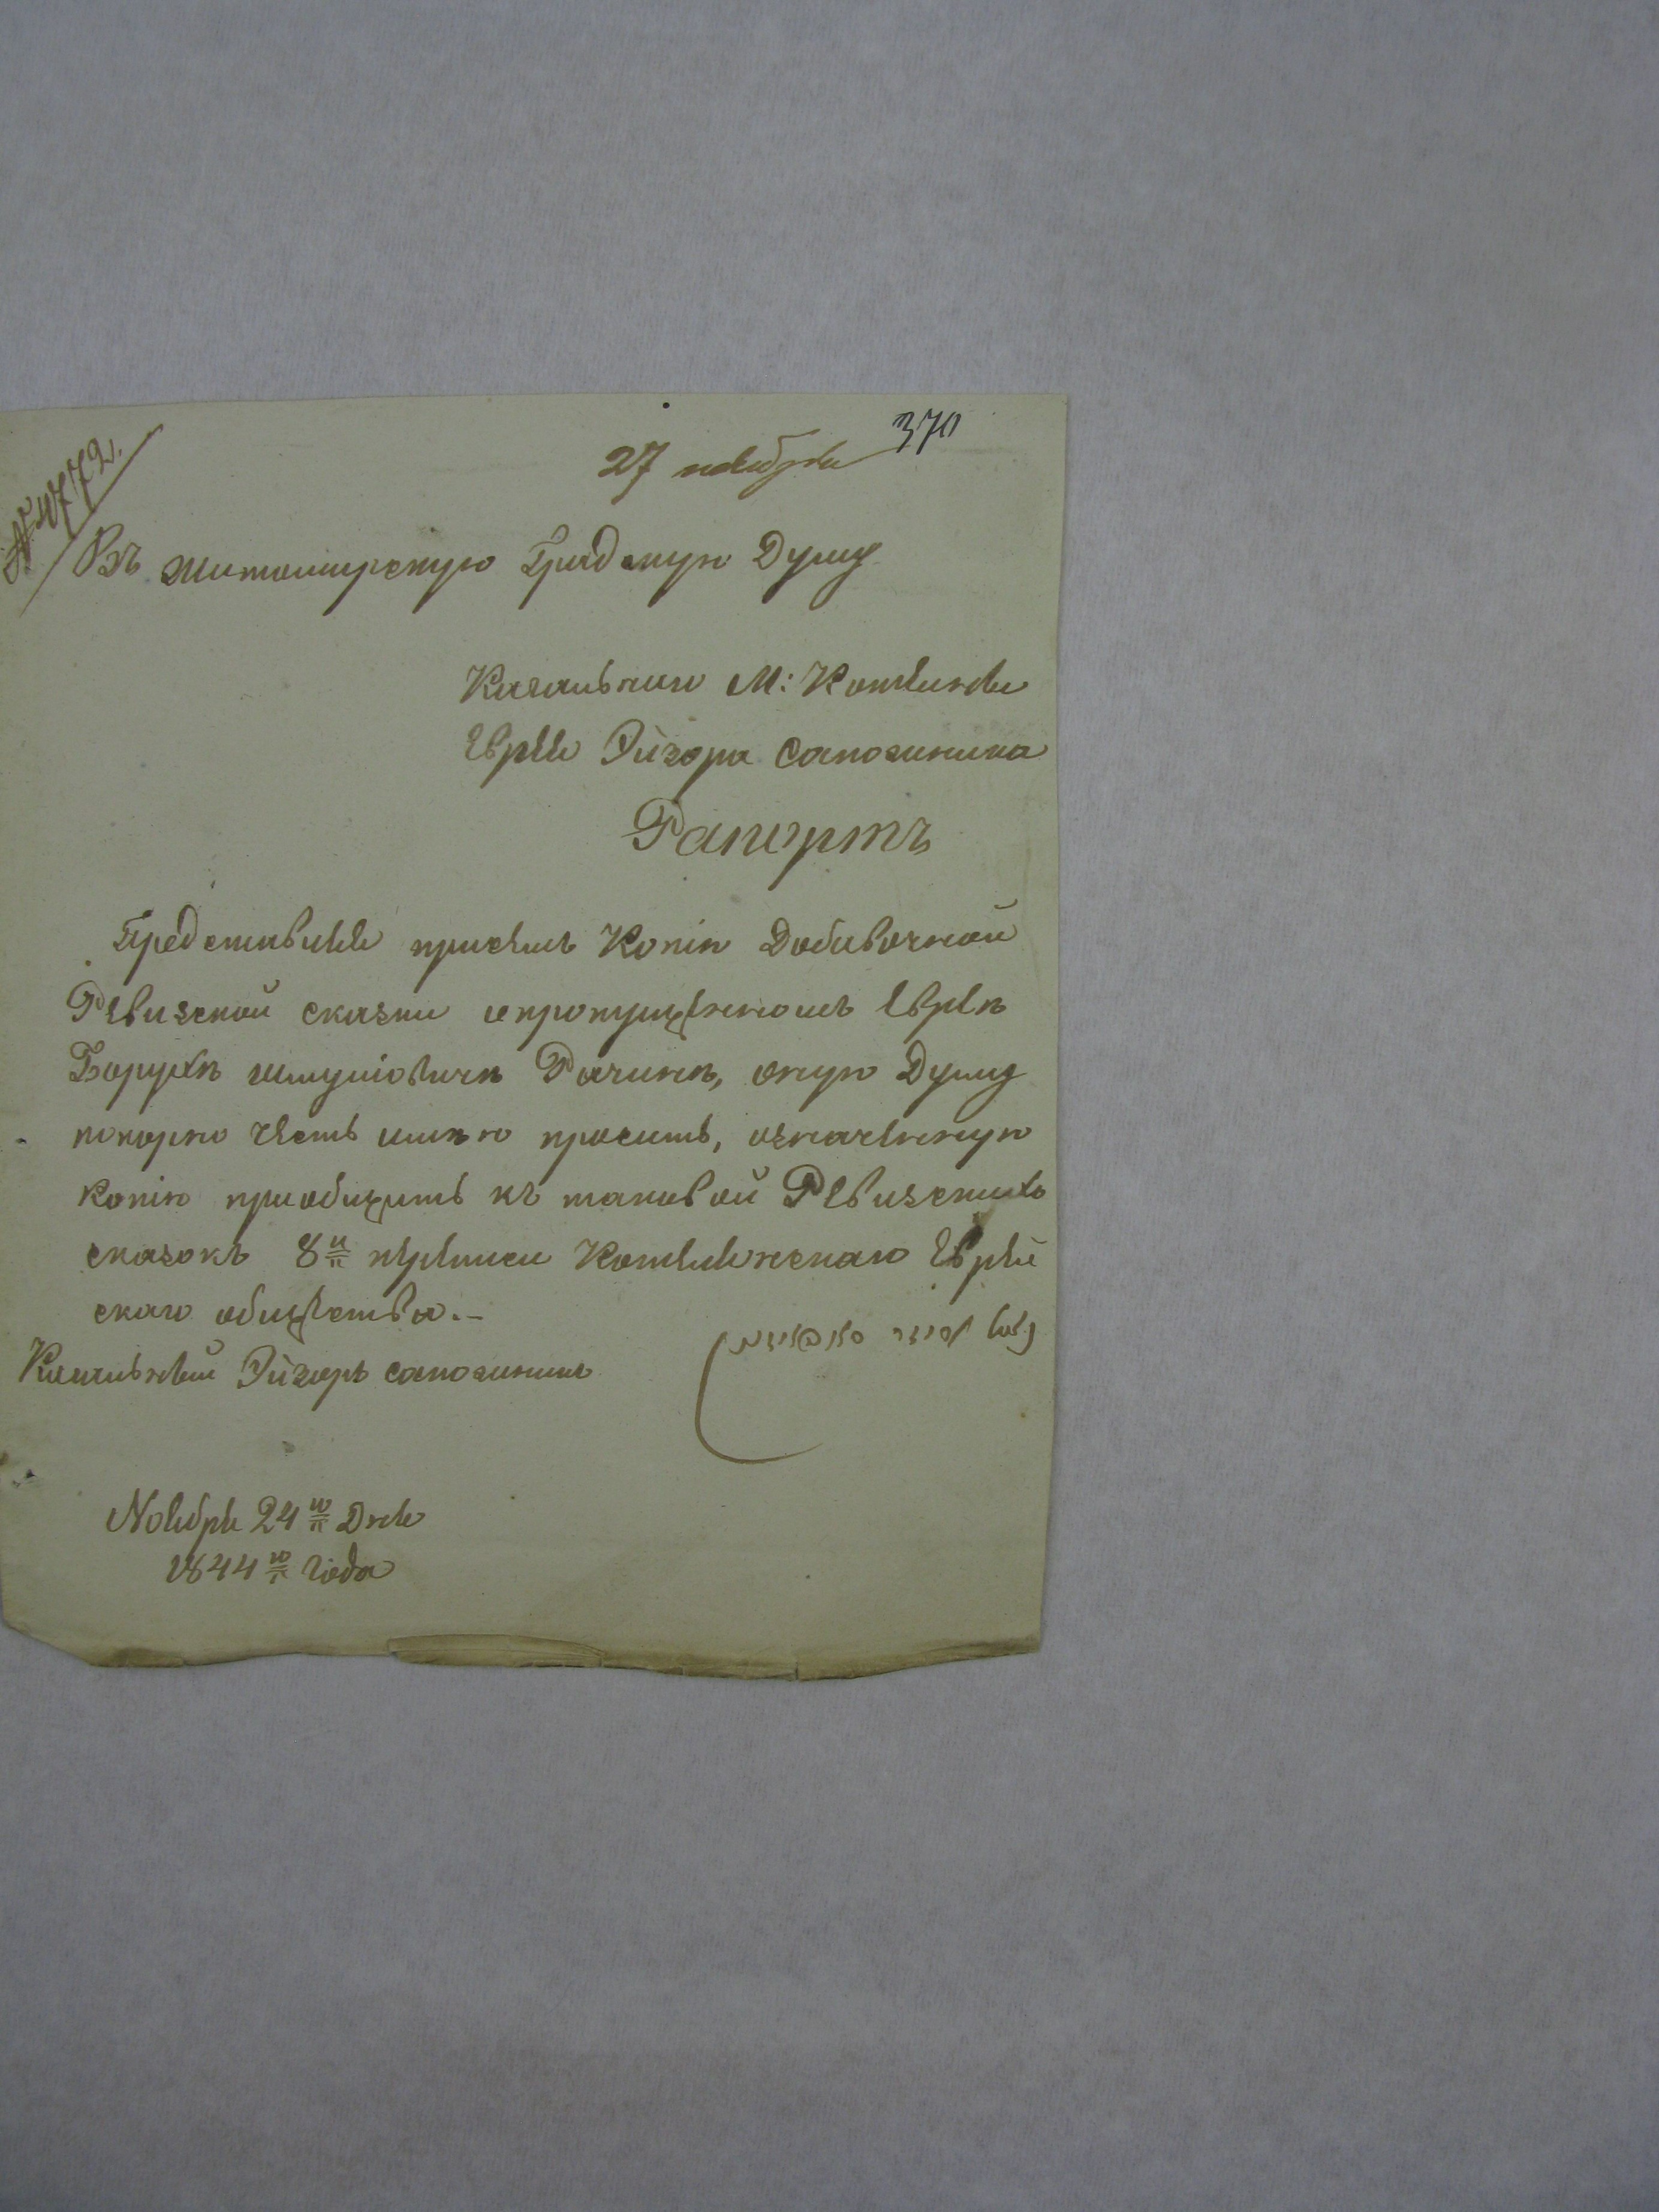 370
27 ноября
№ 4772.
Въ Житомирскую Градскую Думу
Кагальнаго М: Котельни
Еврея Эйзора Сапожника
Рапортъ
Представляя присемъ Копію Добавочной
Ревизской сказки опропущенномъ Евреѣ
Борухѣ Шмуліовичѣ Рачинѣ, оную Думу
покорно честь имѣю просить, означенную
Копію приобщить къ таковой Ревизскихъ
сказокъ 8й переписи Котелянскаго Еврей
скаго общества.–
Кагальный Эйзоръ Сапожникъ
Ноября 24го Дня
1844го года